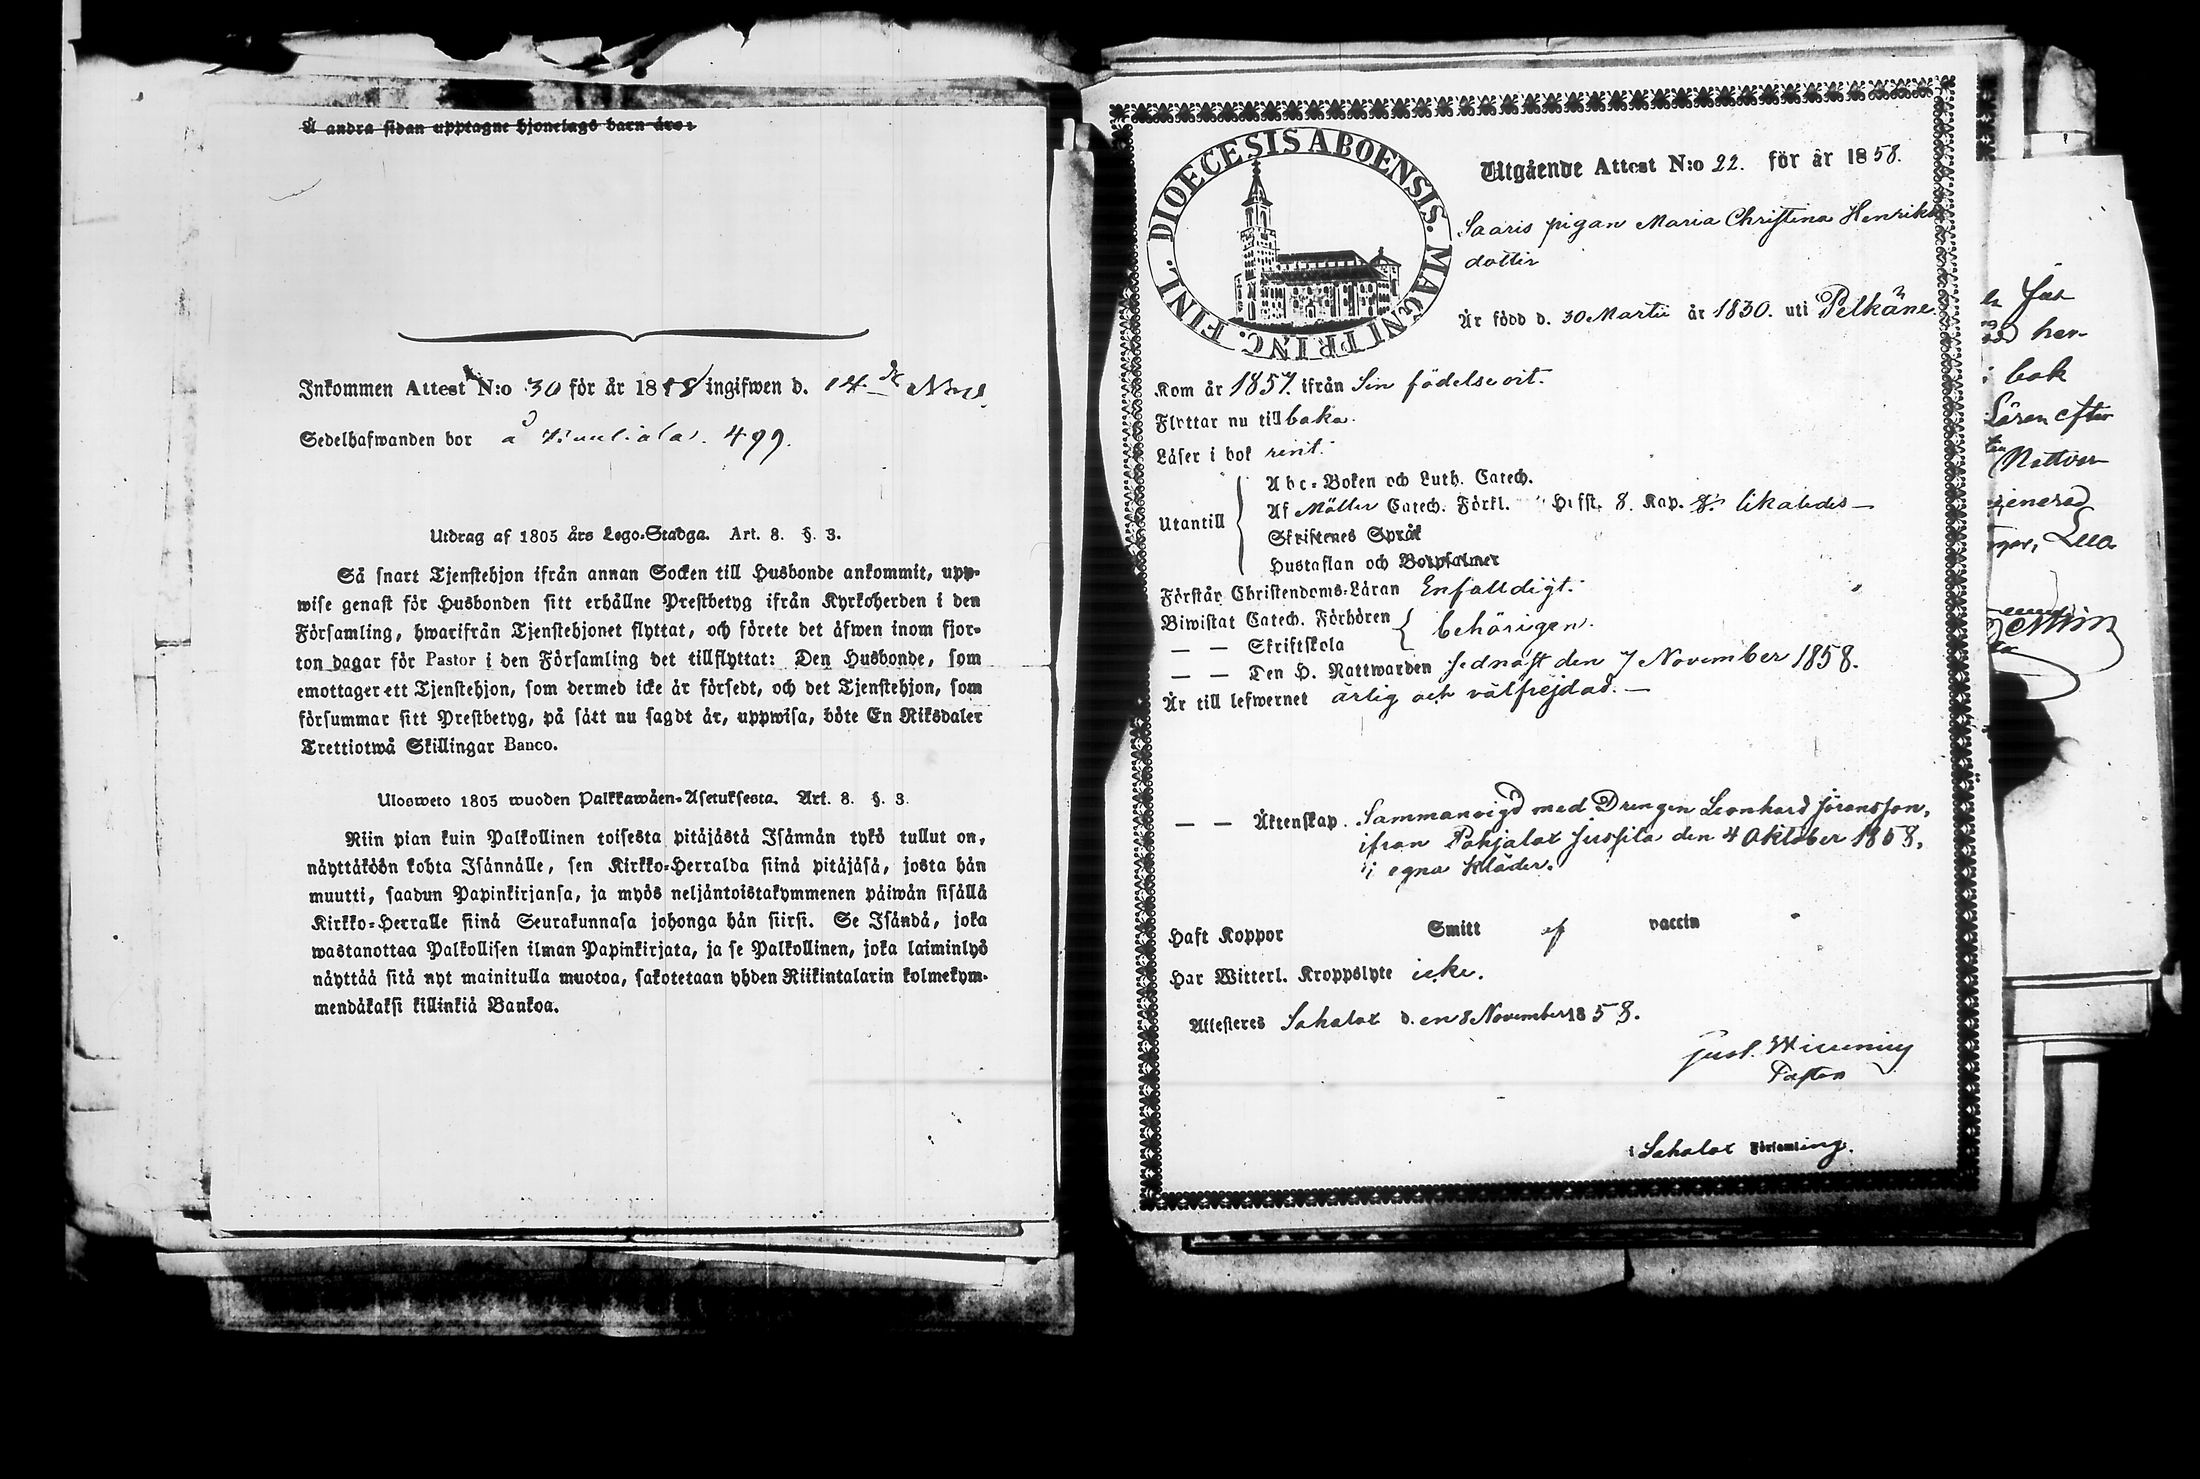 Å andra sidan upptagne hjonelags barn äro:
Inkommen Attest N:o 30 för år 1858 ingifwen d. 14 de Nov.
Sedelhafwanden bor å 499.
Utdrag af 1805 års Lego-Stadga. Art. 8. §. 3.
Så snart Tjenstehjon ifrån annan Socken till Husbonde ankommit, upp-
wise genast för Husbonden sitt erhållne Prestbetyg ifrån Kyrkoherden i den
Församling, hwarifrån Tjenstehjonet flyttat, och förete det äfwen inom fjor-
ton dagar för Pastor i den Församling det tillflyttat: Den Husbonde, som
emottager ett Tjenstehjon, som dermed icke är försedt, och det Tjenstehjon, som
försummar sitt Prestbetyg, på sätt nu sagdt är, uppwisa, böte En Riksdaler
Trettiotwå Skillingar Banco.
Ulosweto 1805 wuoden Palkkawäen-Asetuksesta. Art. 8. §. 3.
Niin pian kuin Palkollinen toisesta pitäjästä Isännän tykö tullut on,
näyttäköön kohta Isännälle, sen Kirkko-Herralda siinä pitäjäsä, josta hän
muutti, saadun Papinkirjansa, ja myös neljäntoistakymmenen päiwän sisällä
Kirkko-Herralle siinä Seurakunnasa johonga hän siirsi. Se Isändä, joka
wastanottaa Palkollisen ilman Papinkirjata, ja se Palkollinen, joka laiminlyö
näyttää sitä nyt mainitulla muotoa, sakotetaan yhden Riikintalarin kolmekym-
mendäkaksi killinkiä Bankoa.
DIOECESIS ABOENSIS. MAGNI PRINC. FINL.
Utgående Attest N:o 22. för år 1858.
Saaris pigan Maria Christina Henriks
dotter
Är född d. 30 Martii år 1830. uti Pelkäne
Kom år 1857. ifrån Sin födelseort.
Flyttar nu tillbaka.
Läser i bok rent.
Utantill
Abc-Boken och Luth. Catech.
Af Möller Catech. Förkl. Hfst. 8. Kap. 8. likaledes —
Skriftenes Språk
Hustaflan och Botpsalmer
Förstår Christendoms-Läran Enfaldigt.
Biwistat Catech. Förhören
— — Skriftskola
behörigen.
— — Den H. Nattwarden sednast den 7 November 1858.
Är till lefwernet ärlig och välfrejdad. —
— — Äktenskap. Sammanvigd med Drengen Leonhard Göransson,
ifran Pohjalax Jussila den 4 Oktober 1858.
i egna Kläder.
Haft Koppor Smitt ej vaccin
Har Witterl. Kroppslyte icke.
Attesteres Sahalax d. en 8 November 1858.
Pastor
i Sahalax Församling.
her
bok
Lären efter
Nattvar